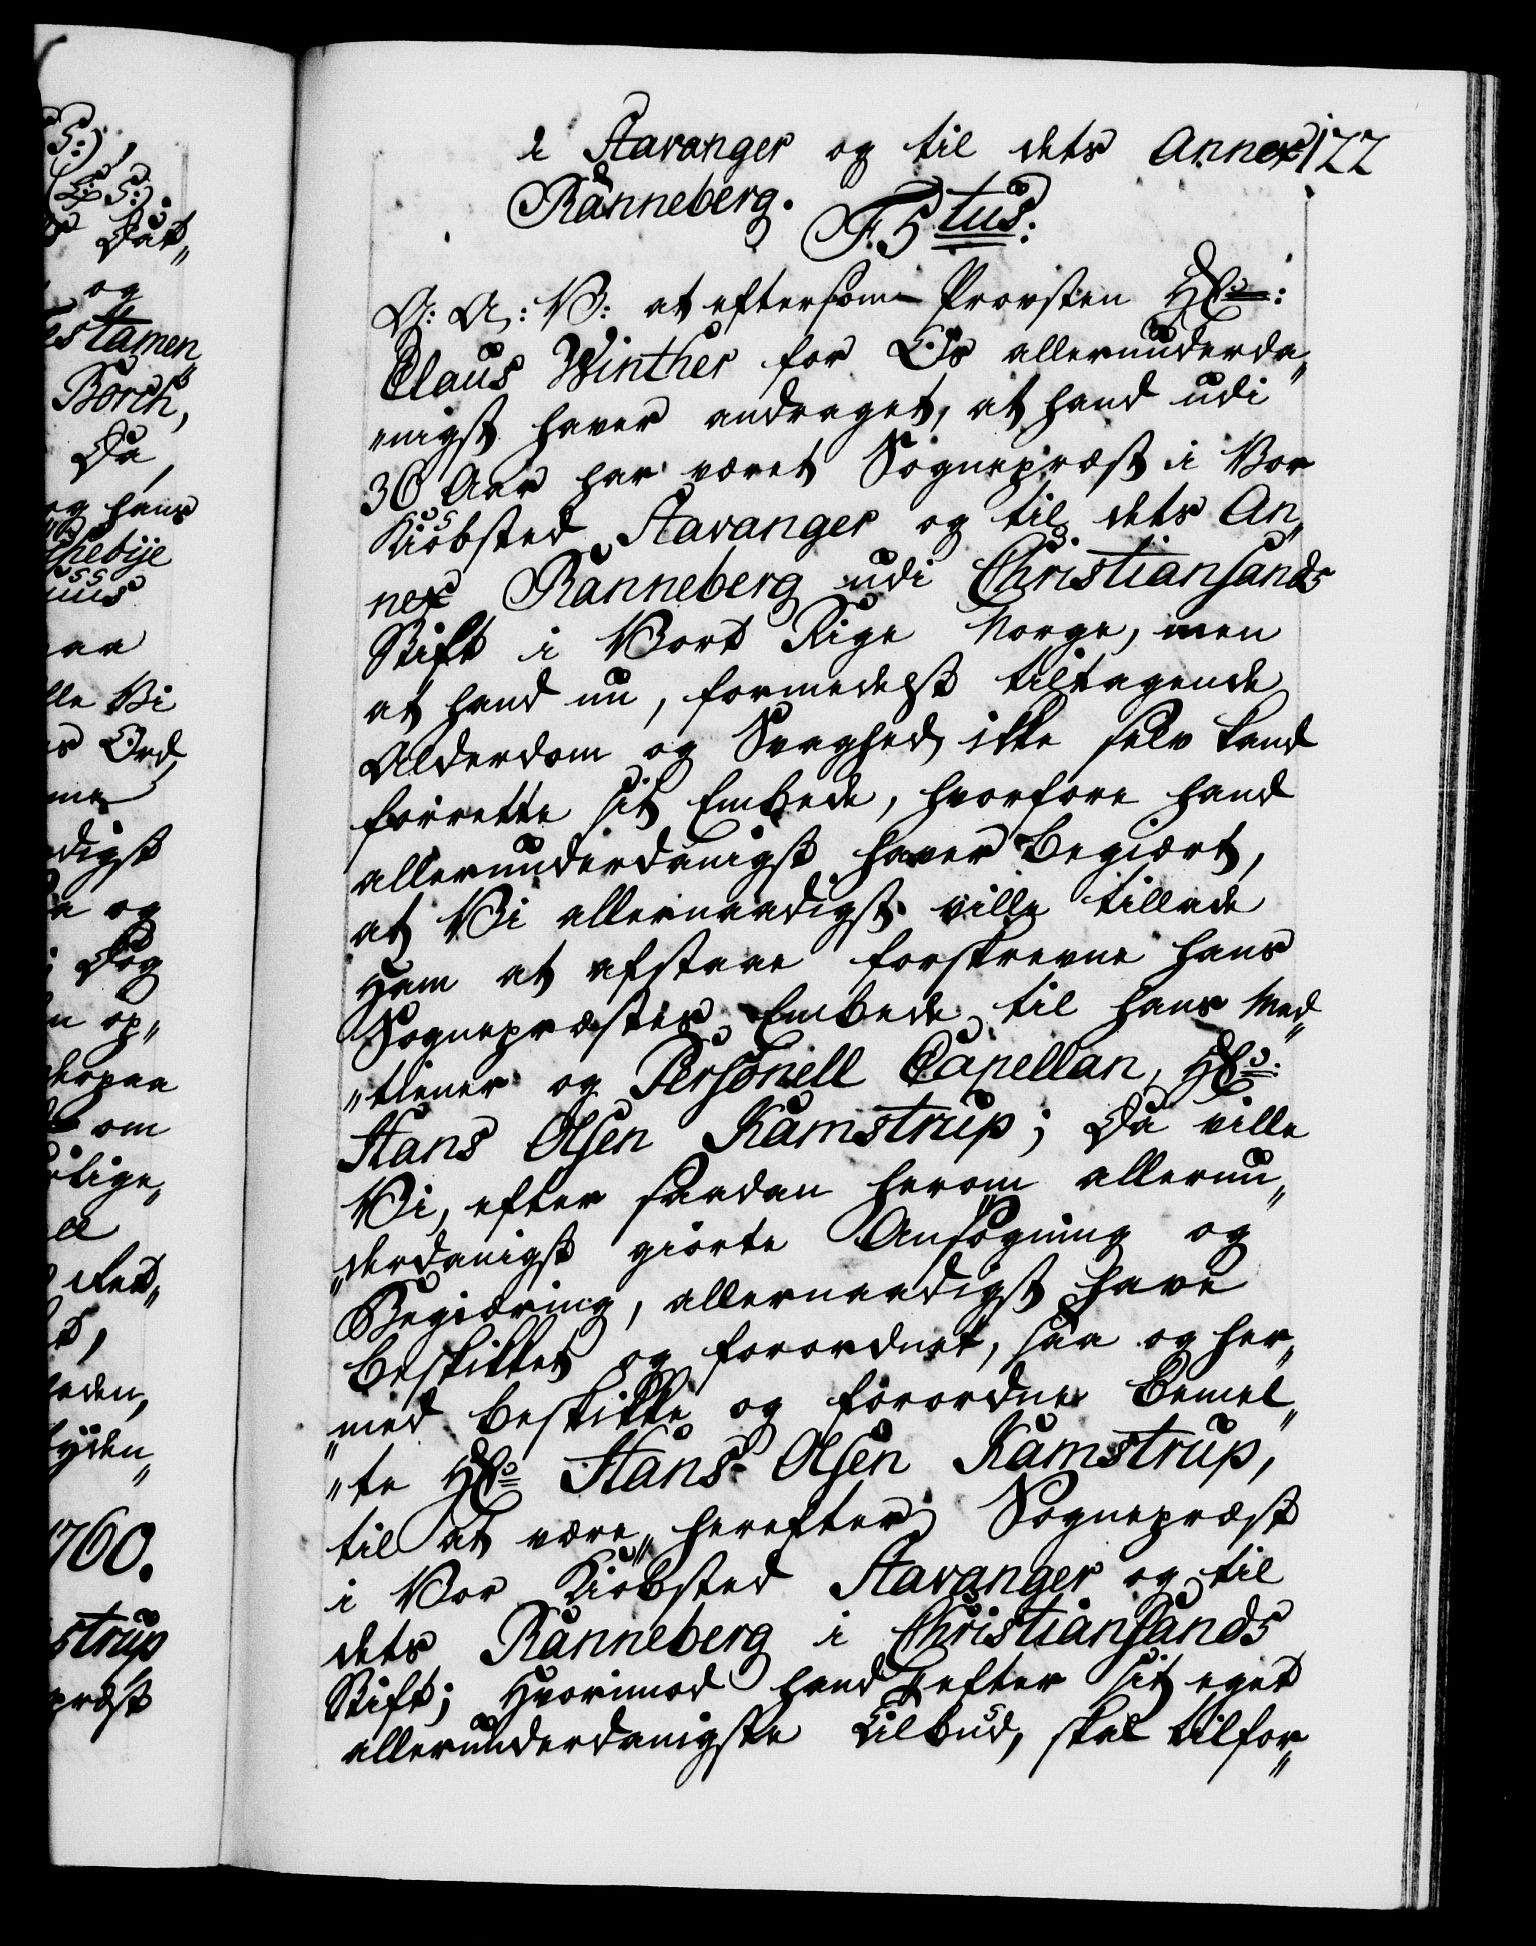 i Stavanger og til dets Annex 122
Ranneberg.
F. 5 tus:
G: A: V: at eftersom Provsten Hr:
Claus Winther for Os allerunderda„
„nigst haver andraget, at hand udi
36 Aar har været Sognepræst i Vor
Kiøbsted Stavanger og til dets An„
nex Ranneberg udi Christiansands
Stift i Vort Rige Norge, men
at hand nu, formedelst tiltagende
Alderdom og Svaghed ikke selv kand
forrette sit Embede, hvorfore hand
allerunderdanigst haver begiært,
at Vi allernaadigst ville tillade
Ham at afstaae forskrevne hans
Sognepræstes Embede til hans Med„
„tiener og Personell Capellan, Hr:
Hans Olsen Kamstrup; Da ville
Vi, efter saadan herom allerun„
„derdanigst giorte Ansøgning og
Begiæring, allernaadigst have
beskikket og forordnet, saa og her„
„med beskikke og forordne bemel„
„te Hr Hans Olsen Kamstrup,
til at være„ herefter Sognepræst
i Vor Kiøbsted Stavanger og til
dets Ranneberg i Christiansands
Stift; Hvorimod hand efter sit eget
allerunderdanigste Tilbud, skal tilfor„